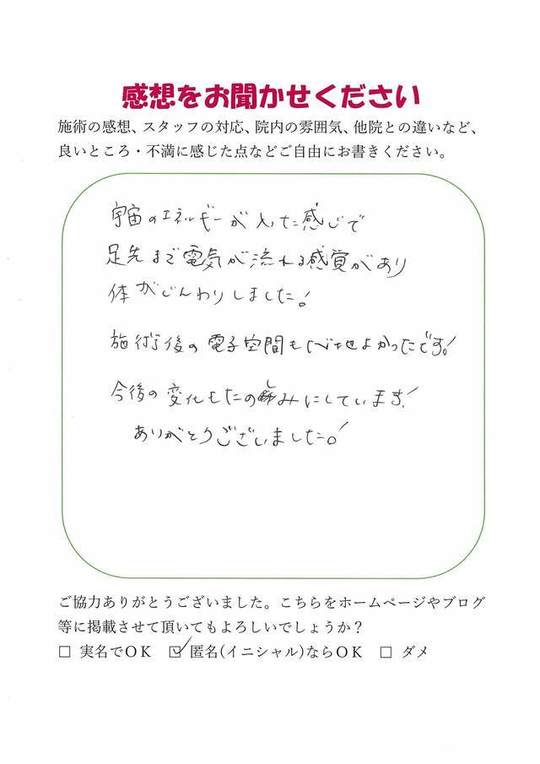 感想をお聞かせください
施術の感想、スタッフの対応、院内の雰囲気、他院との違いなど、
良いところ・不満に感じた点などご自由にお書きください。
宇宙のエネルギーが入った感じで
足先まで電気が流れる感覚があり
体がじんわりしました!
施術後の電子空間も心地よかったです!
今後の変化もたのしみにしています!
ありがとうございました!
ご協力ありがとうございました。こちらをホームページやブログ
等に掲載させて頂いてもよろしいでしょうか?
□ 実名でOK ☑ 匿名(イニシャル)ならOK □ ダメ